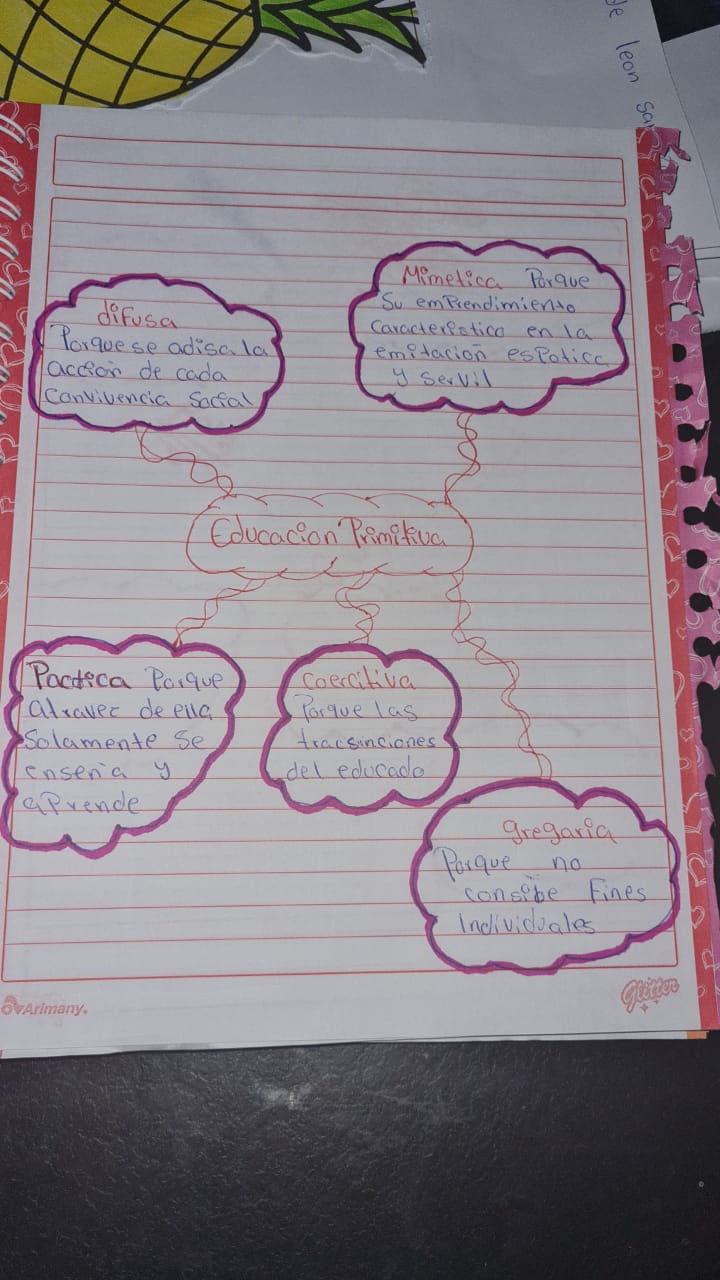 de leon sa
Mimetica Porque
Su emPrendimiento
caracteristico en la
emitacion espotica
y servil
difusa
Porque se adisa la
acción de cada
convivencia Social
Educacion Primitiva
Pactica Porque
atravez de ella
Solamente se
enseña y
aprende
coercitiva
Porque las
tracsinciones
del educado
gregaria
Porque no
consibe Fines
individuales
Arimany.
Glitter